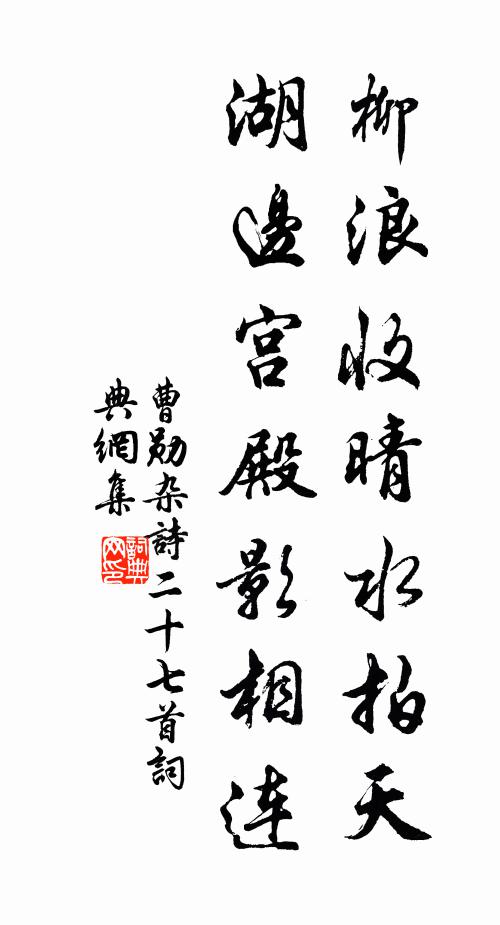 柳浪收晴水拍天
湖邊宮殿影相連
曹勛杂詩二十七首詞
典網集
詞典网印